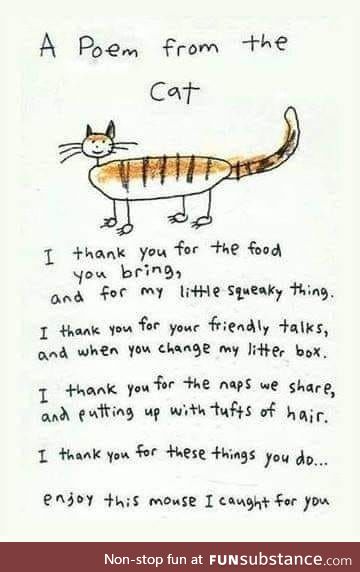 A Poem from the
Cat
I thank you for the food
you bring,
and for my little squeaky thing.
I thank you for your friendly talks,
and when you change my litter box.
I thank you for the naps we share,
and putting up with tufts of hair.
I thank you for these things you do...
enjoy this mouse I caught for you
Non-stop fun at FUNsubstance.com